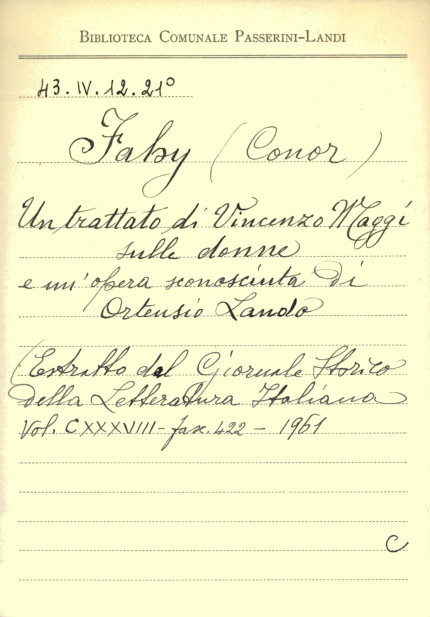 BIBLIOTECA COMUNALE PASSERINI-LANDI
43.IV.12.21°
Fahy (Conor)
Un trattato di Vincenzo Maggi
sulle donne
e un'opera sconosciuta di
Ortensio Lando
(Estratto dal Giornale Storico
della Letteratura Italiana
Vol. CXXXVIII - fasc. 422 - 1961
C